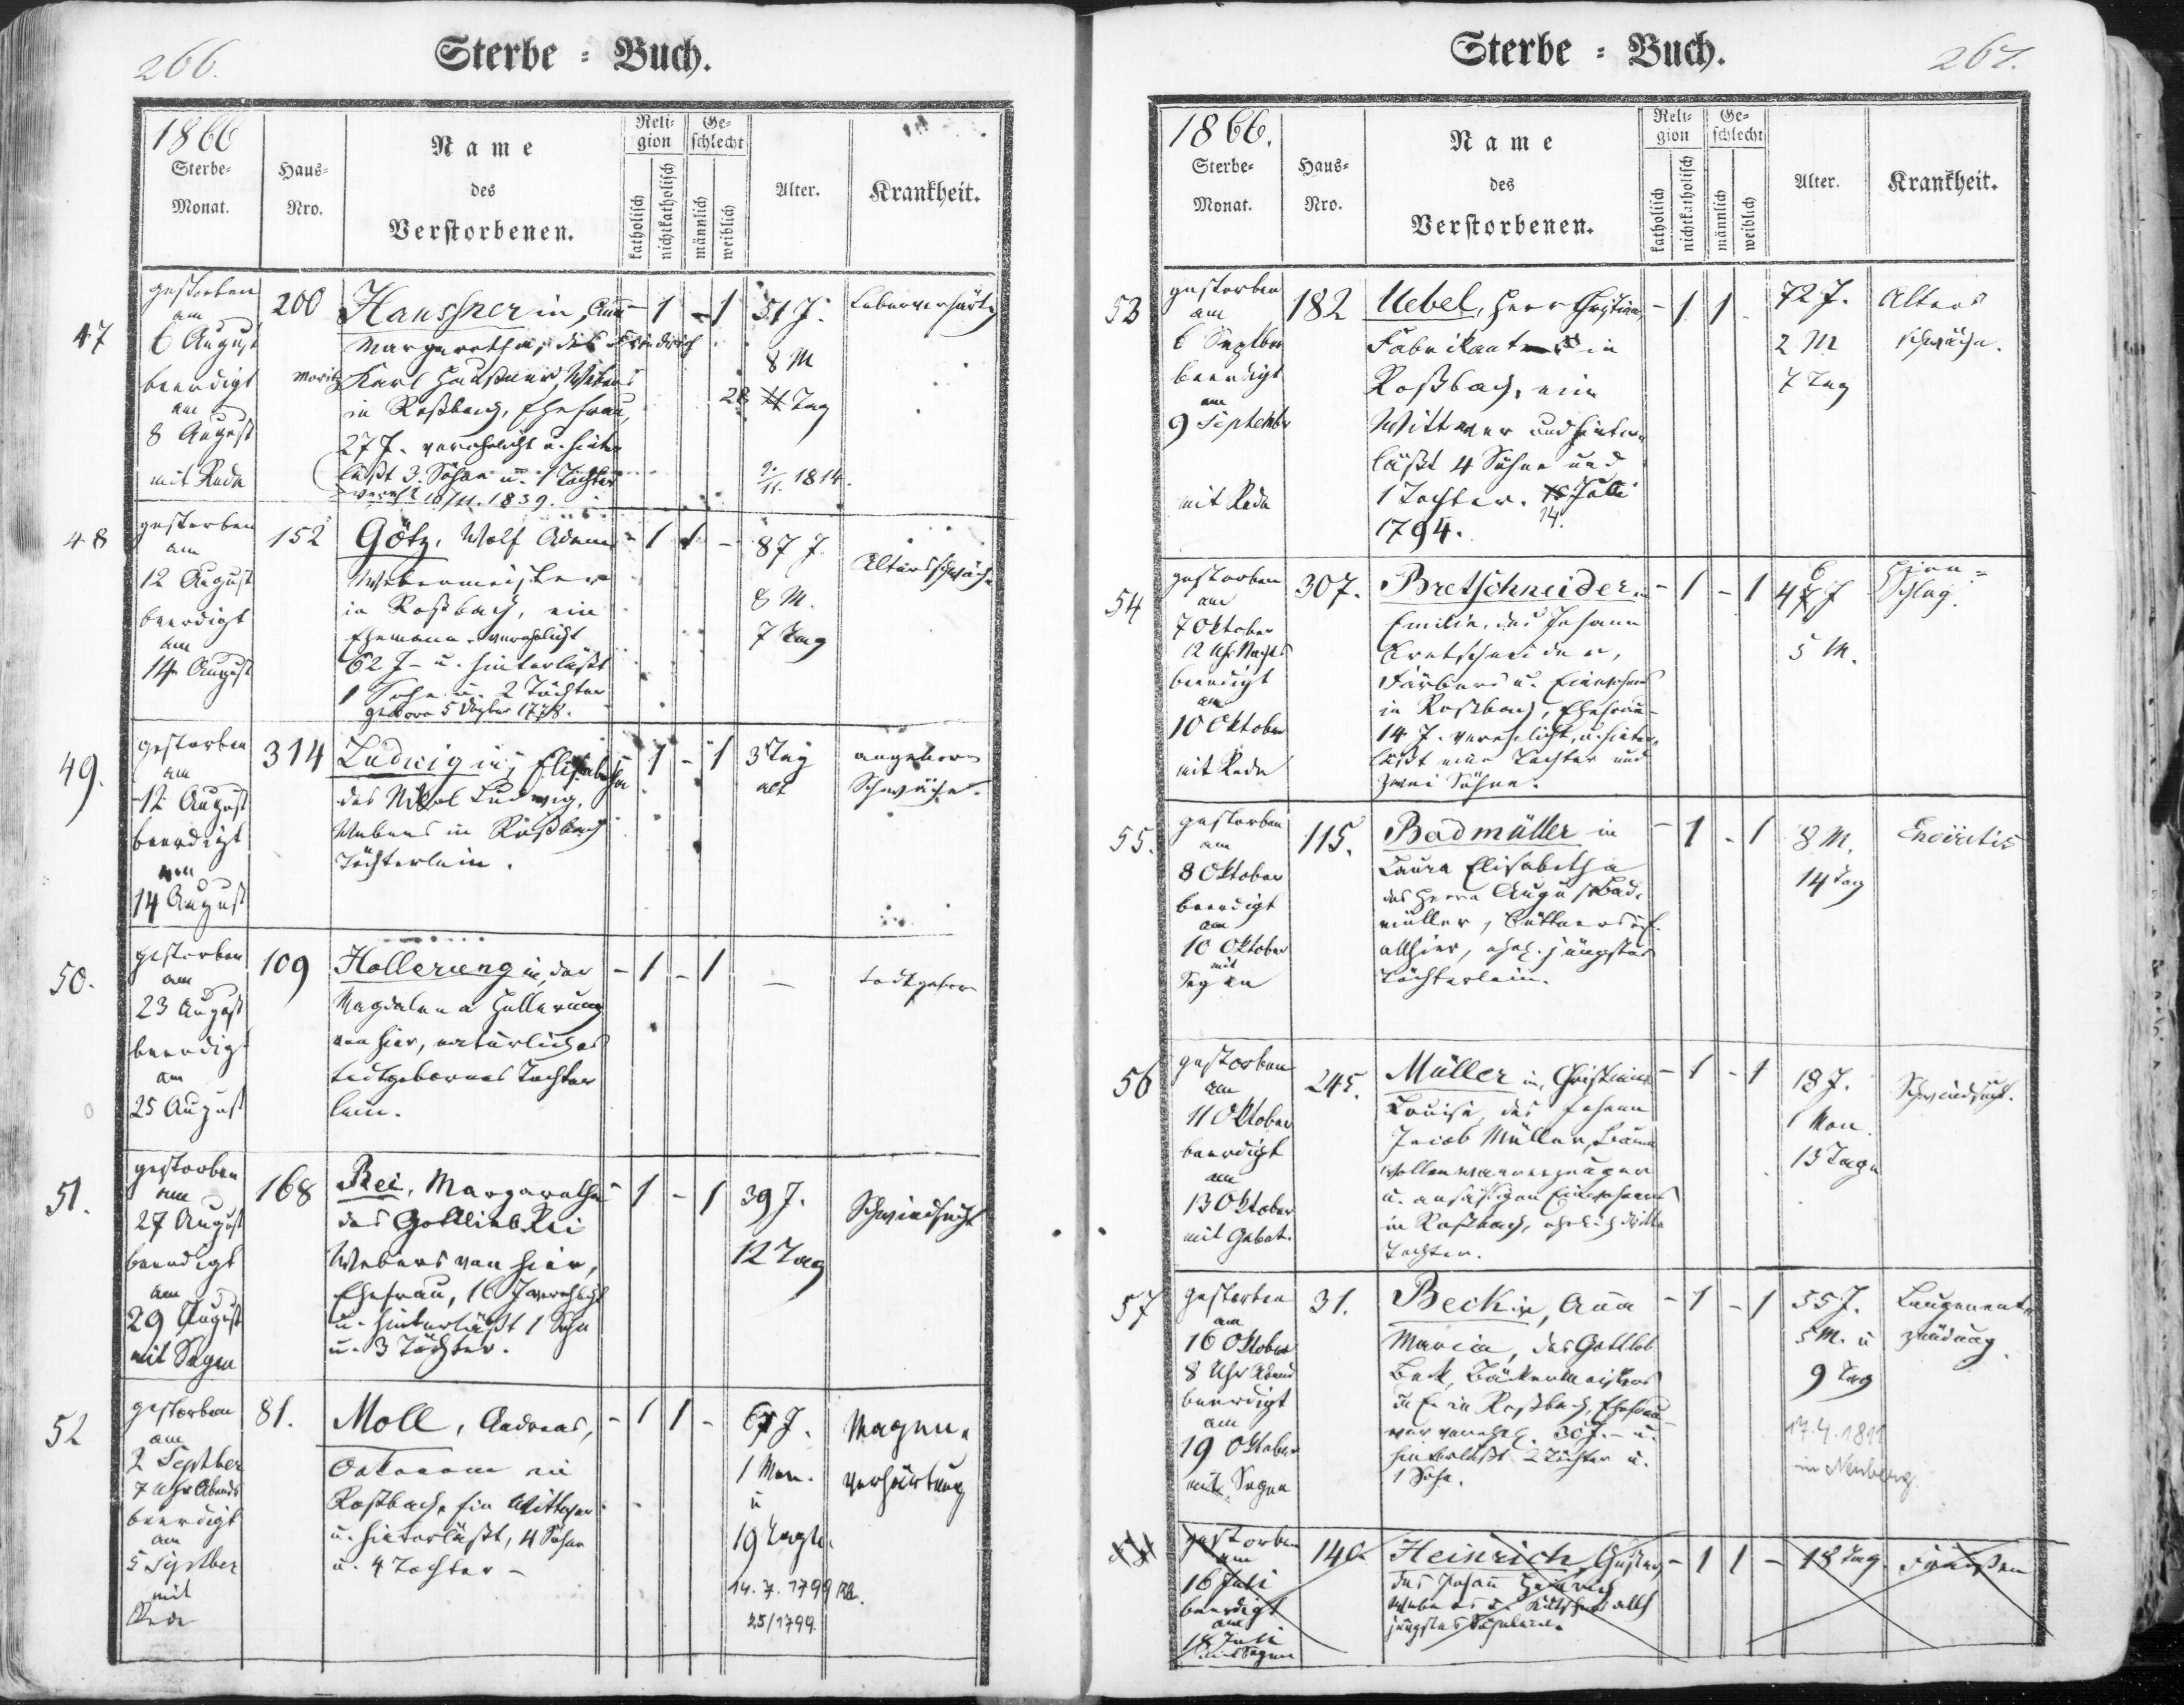 266.
Sterbe = Buch.
1866
Sterbe-
Monat.
Haus-
Nro.
Name
des
Verstorbenen.
Reli-
gion
katholisch
nichtkatholisch
Ge-
schlecht
männlich
weiblich
Alter.
Krankheit.
47
gestorben
am
6 August
beerdigt
am
8 August
mit Rede
200
Haussner in, Anna
Margaretha, des Friedrich
Moritz Karl Haußner, Webers
in Roßbach, Ehefrau,
27 J. verehelicht u. hinter
läßt 3 Söhne u. 1 Tochter
verehl 10/11. 1839.
- 1 - 1
51 J.
8 M
28 Tag
9./11. 1814.
Leberverhärtg
48
gestorben
am
12 August
beerdigt
am
14 August
152
Götz, Wolf Adam
Webermeister
in Roßbach, ein
Ehemann, verehelicht
62 J. u. hinterläßt
1 Sohn u. 2 Töchter
geboren 5 Dezber 1778.
- 1 1 -
87 J.
8 M.
7 Tag
Altersschwäche
49.
gestorben
am
12 August
beerdigt
am
14 August
314
Ludwig in, Elisabetha
des Nikol Ludwig,
Webers in Roßbach
Töchterlein.
1 - 1
3 Tag
alt
angeborne
Schwäche.
50.
gestorben
am
23 August
beerdigt
am
25 August
109
Hollerung in, der
Magdalena Hollerung
von hier, natürliches
todtgebornes Töchter
lein.
- 1 - 1
-
todtgeboren
51.
gestorben
am
27 August
beerdigt
am
29 August
mit Segen
168
Rei, Margaretha
des Gottlieb Rei
Webers von hier,
Ehefrau, 16 J verehelicht
u. hinterläßt 1 Sohn
u. 3 Töchter.
- 1 - 1
39 J.
12 Tag
Schwindsucht
52
gestorben
am
2 Septber
7 Uhr Abends
beerdigt
am
5 Septber
mit
Rede
81.
Moll, Andreas,
Oekonom in
Roßbach, ein Wittwer
u. hinterläßt, 4 Söhne
u. 4 Töchter -
- 1 1 -
67 J.
1 Mon.
u
19 Tage.
14. 7. 1799
25/1799
Magen-
verhärtung
267.
Sterbe = Buch.
1866.
Sterbe-
Monat.
Haus-
Nro.
Name
des
Verstorbenen.
Reli-
gion
katholisch
nichtkatholisch
Ge-
schlecht
männlich
weiblich
Alter.
Krankheit.
53
gestorben
am
6 Septber
beerdigt
am
9 September
mit Rede
182
Uebel, Herr Christian,
Fabrikant in
Roßbach, ein
Wittwer und hinter-
läßt 4 Söhne und
1 Tochter. Juli
14.
1794.
- 1 1 -
72 J.
2 M
7 Tag
Alters
schwäche.
54
gestorben
am
7 Oktober
12 Uhr Nachts
beerdigt
am
10 Oktober
mit Rede
307.
Bretschneider in
Emilie, des Johann
Bretschneider,
Färbers u. Einwohners
in Roßbach, Ehefrau
14 J. verehelicht, u. hinter-
läßt eine Tochter und
zwei Söhne.
- 1 - 1
46 J
5 M.
Hirn=
schlag.
55.
gestorben
am
8 Oktober
beerdigt
am
10 Oktober
mit
Segen
115.
Badmüller in
Laura Elisabetha
des Herrn August Bad-
müller,
allhier, ehel. jüngstes
Töchterlein.
- 1 - 1
8 M.
14 Tag
56
gestorben
am
11 Oktober
beerdigt
am
13 Oktober
mit Gebet.
245.
Müller in, Christiane
Louise, des Johann
Jacob Müller, Baum
wollenwarenerzeuger
u. ansäßigen Einwohners
in Roßbach, ehelich dritte
Tochter.
- 1 - 1
18 J.
1 Mon.
13 Tage
Schwindsucht.
57
gestorben
am
16 Oktober
8 Uhr Abend
beerdigt
am
19 Oktober
mit Segen
31.
Beck in, Anna
Maria, des Gottlob
Beck, Bäckermeisters
in Roßbach, Ehefrau
war verehel. 30 J. u.
hinterläßt 2 Töchter u.
1 Sohn.
- 1 - 1
55 J.
5 M. u
9 Tag
17.4.1811
in Neuberg
Lungenent-
zündung.
gestorben
am
16 Juli
beerdigt
am
18 Juli
mit Segen
140.
Heinrich, Gustav
des Johann Heinrich
jüngstes Söhnlein.
- 1 1 -
18 Tag.
Fraißen